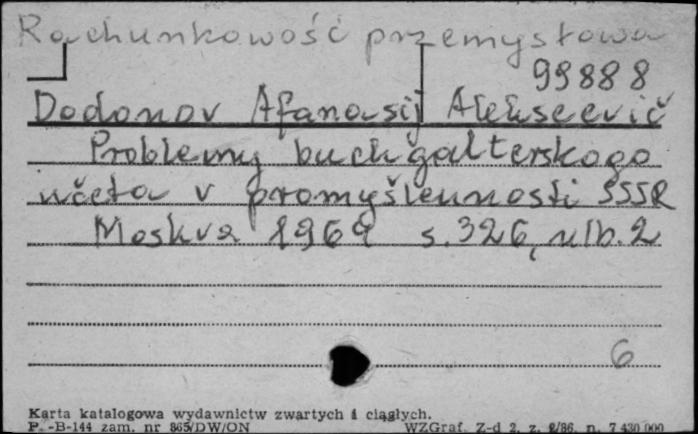 Rachunkowość przemysłowa
99888
Dodonov Afanasij Alekseevič
Problemy buchgalterskogo
učeta v promyšlennosti SSSR
Moskva 1969 s. 326, nlb. 2
6
Karta katalogowa wydawnictw zwartych i ciągłych.
P.-B-144 zam. nr 865/DW/ON WZGraf. Z-d 2, z. 2/86, n. 7 430 000